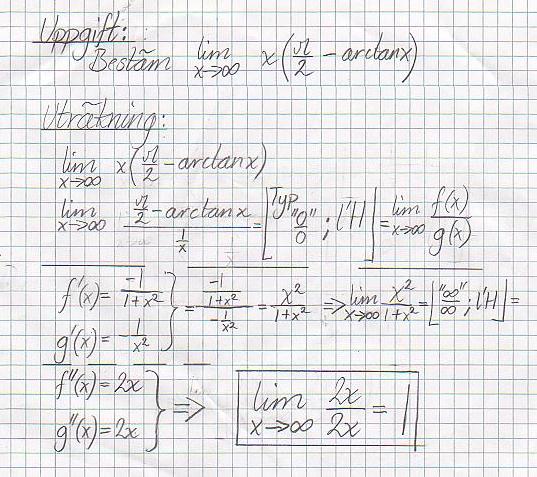 Uppgift:
Bestäm lim x→∞ x(π/2 - arctanx)
Uträkning:
lim x→∞ x(π/2 - arctanx)
lim x→∞ (π/2 - arctanx)/(1/x) = [Typ "0/0"; l'H] = lim x→∞ f(x)/g(x)
f'(x) = -1/(1+x²) } = (-1/(1+x²))/(-1/x²) = x²/(1+x²) ⇒ lim x→∞ x²/(1+x²) = ["∞/∞"; l'H] =
g'(x) = -1/x²
f''(x) = 2x } ⇒ lim x→∞ 2x/2x = 1
g''(x) = 2x